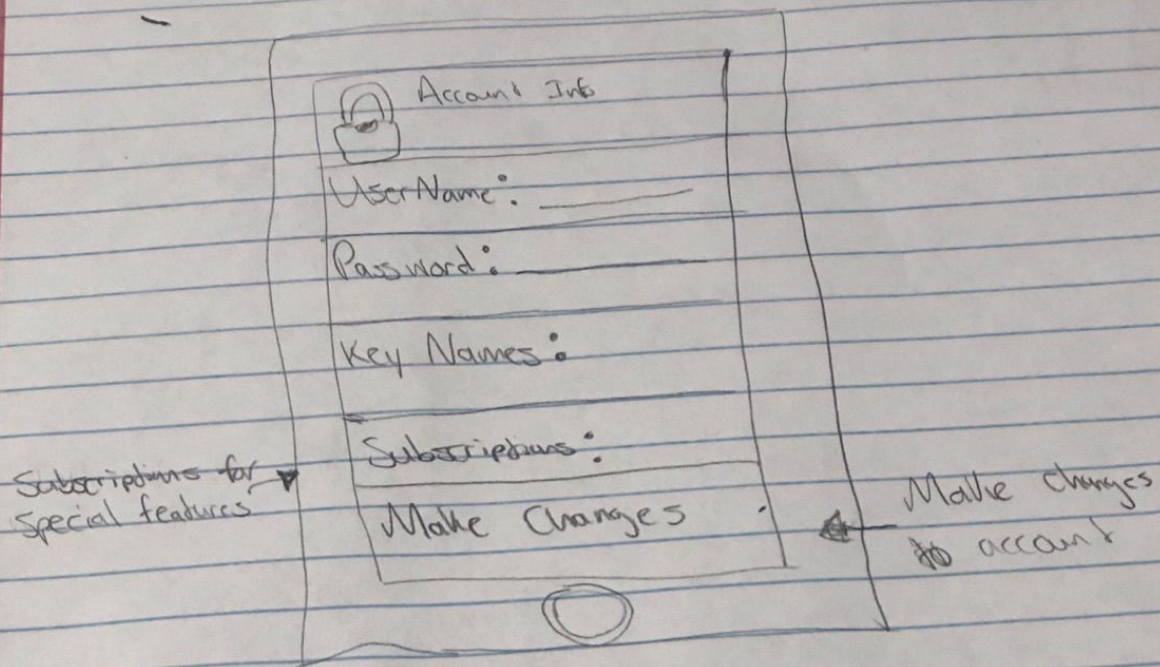 Account Info
UserName:
Password:
Key Names:
Subscriptions:
Make Changes
Subscriptions for
Special features
Make changes
to account